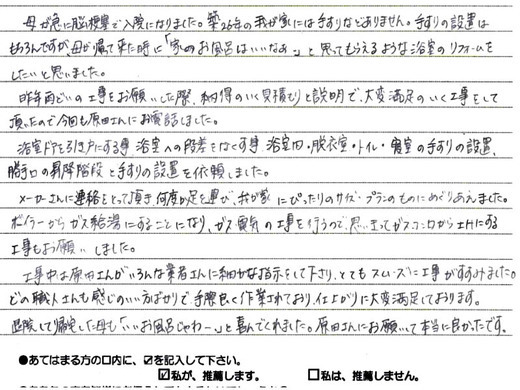 母が急に脳梗塞で入院になりました。築26年の我が家には手すりなどありません。手すりの設置は
もちろんですが、母が帰って来た時に「家のお風呂はいいなぁ」と思ってもらえるような浴室のリフォームを
したいと思いました。
昨年雨どいの工事をお願いした際、納得のいく見積もりと説明で、大変満足のいく工事をして
頂いたので今回も原田さんにお電話しました。
浴室ドアを引き戸にする事、浴室への段差をなくす事、浴室内・脱衣室・トイレ・寝室の手すりの設置、
勝手口の昇降階段と手すりの設置を依頼しました。
メーカーさんに連絡をとって頂き何度か足を運び、我が家にぴったりのサイズ・プランのものにめぐりあえました。
ボイラーからガス給湯にすることになり、ガス・電気の工事を行うので、思い立ってガスコンロからIHにする
工事もお願いしました。
工事中は原田さんがいろんな業者さんに細かな指示をして下さり、とてもスムーズに工事がすすみました。
どの職人さんも感じのいい方ばかりで手際良く作業されており、仕上がりに大変満足しております。
退院して帰宅した母も「いいお風呂じゃわー」と喜んでくれました。原田さんにお願いして本当に良かったです。
●あてはまる方の口内に、☑を記入して下さい。
☑私が、推薦します。 □私は、推薦しません。